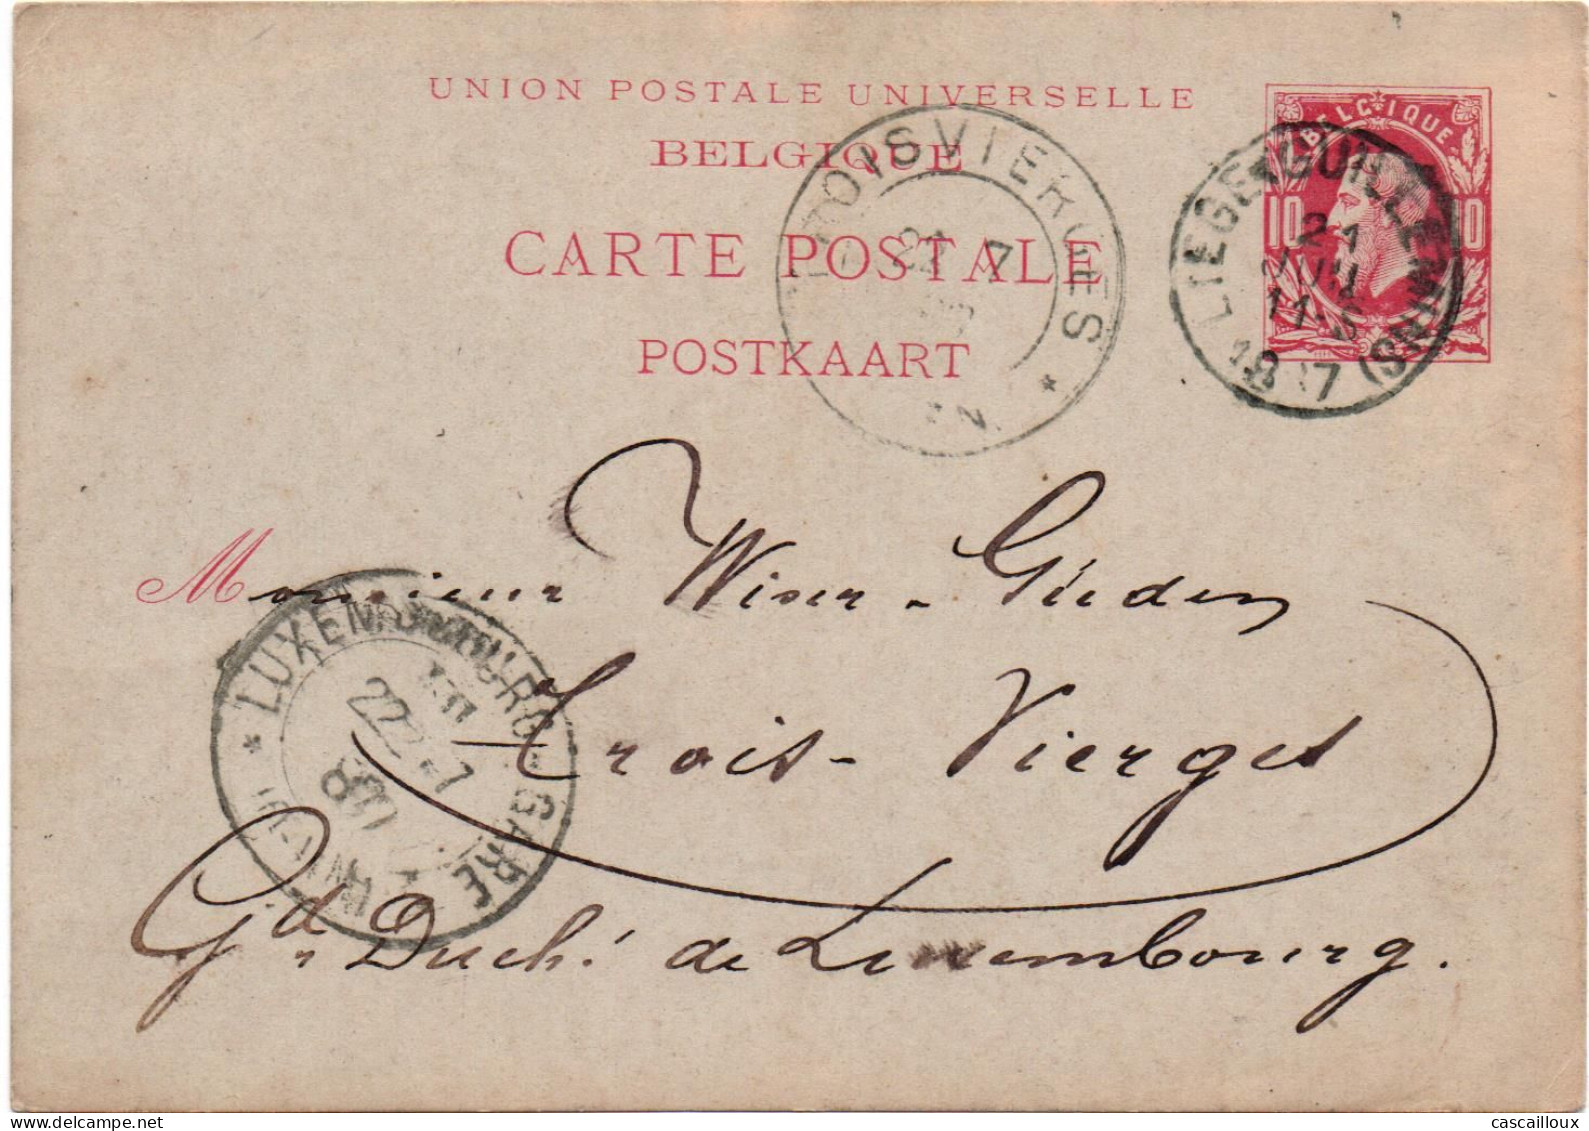 UNION POSTALE UNIVERSELLE
BELGIQUE
CARTE POSTALE
POSTKAART
BELGIQUE
10 10
LIEGE (GUILLEMINS)
21
11-
TROISVIERGES
22 7
Monsieur Wiser-
Trois-Vierges
Gd Duché de Luxembourg.
LUXEMBOURG-GARE
22 7
www.delcampe.net
cascailloux